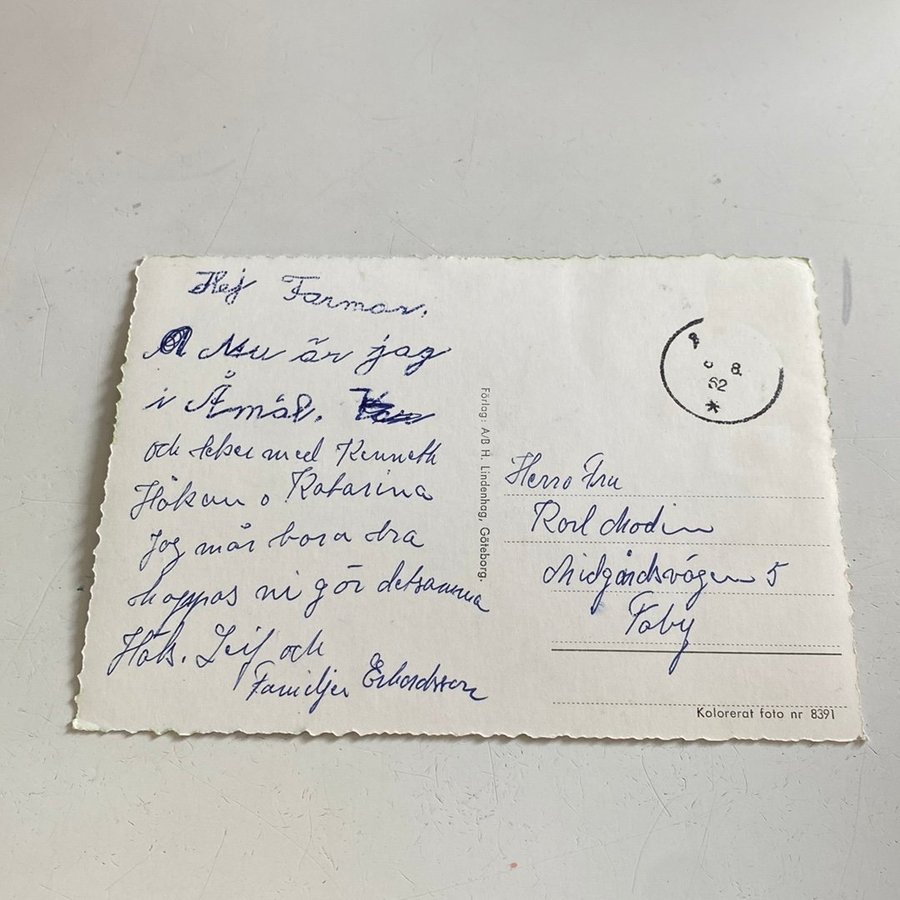 Hej Farmor.
Nu är jag
i Åmål.
och leker med Kenneth
Håkan o Katarina
Jag mår bara bra
hoppas ni gör detsamma
Häls. Leif och
Familjen
Förlag: A/B H. Lindenhag, Göteborg.
8.
62
Herro Fru
Modin
Midgårdsvägen 5
Täby
Kolorerat foto nr 8391